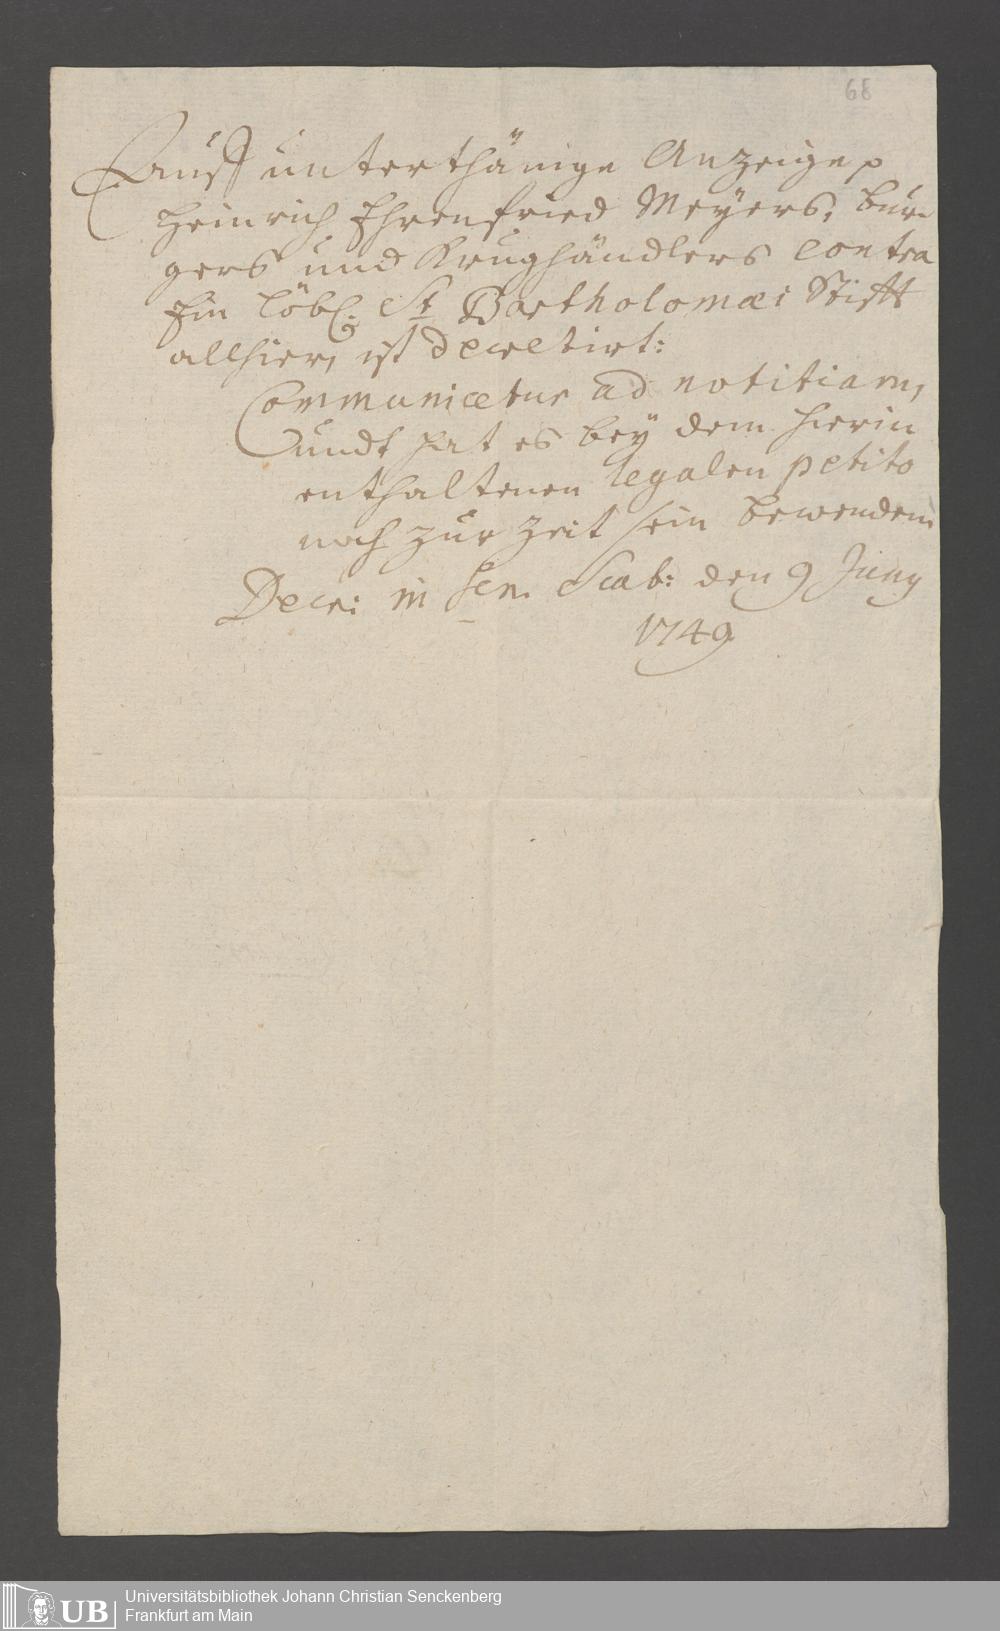 68
Auff unterthänige Anzeige p
Heinrich Ehrenfried Meÿers, bür¬
gers und Krughändlers contra
Ein löbl. St Bartholomæi Stifft
allhier, ist decretirt:
Communicetur ad notitiam,
undt hat es beÿ dem hierin
enthaltenen legalen petito
noch zur Zeit sein bewenden
Decr: in Sen. Scab: den 9 Juny
1749
UB
Universitätsbibliothek Johann Christian Senckenberg
Frankfurt am Main